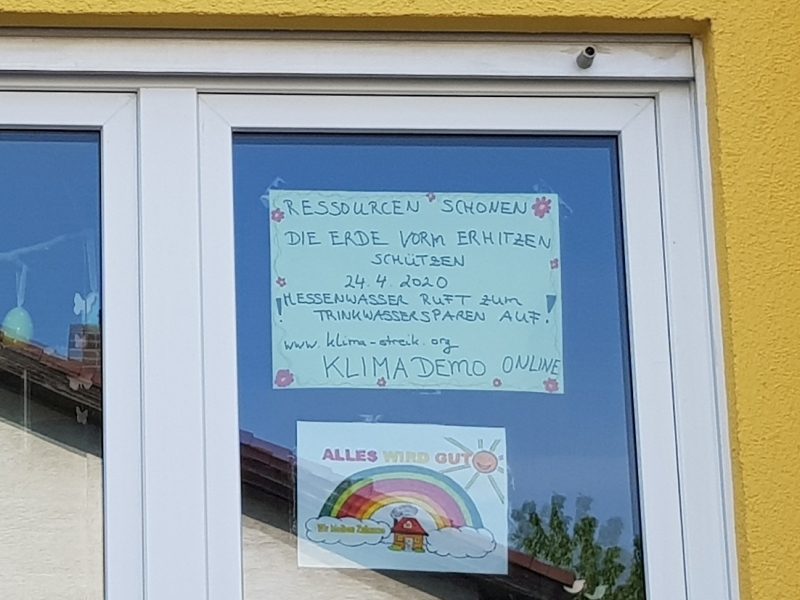 RESSOURCEN SCHONEN
DIE ERDE VORM ERHITZEN
SCHÜTZEN
24.4.2020
! HESSENWASSER RUFT ZUM
TRINKWASSERSPAREN AUF!
www.klima-streik.org
KLIMADEMO ONLINE
ALLES WIRD GUT
Wir bleiben Zuhause